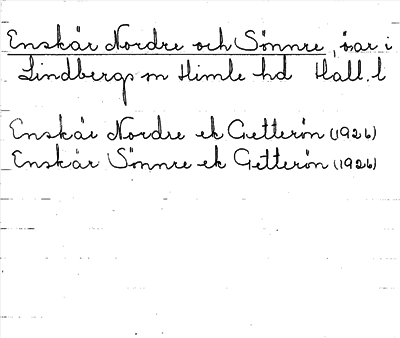 Enskär Nordre och Sönnre, öar i
Lindbergs sn Himle hd Hall. l
Enskär Nordre ek Getterön (1926)
Enskär Sönnre ek Getterön (1926)